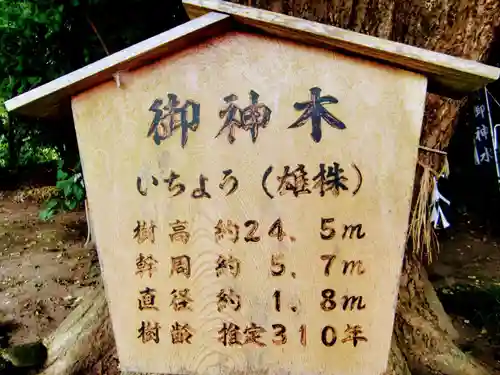 御神木
いちょう（雄株）
樹高 約24．5m
幹周 約 5．7m
直径 約 1．8m
樹齢 推定310年
御神木